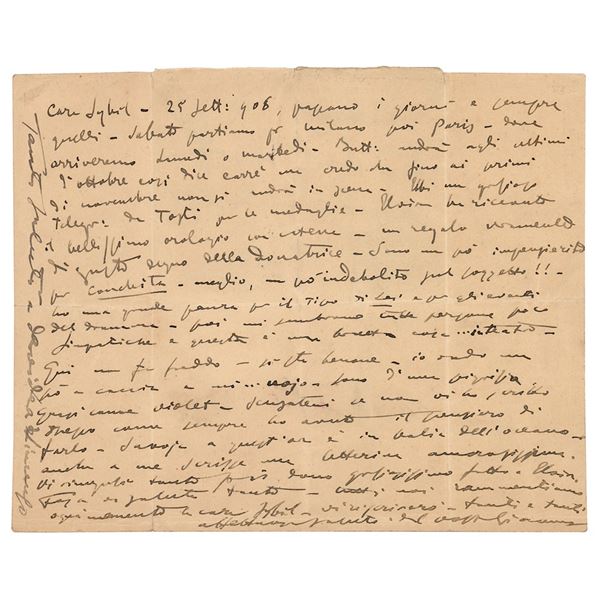 Cara Sybil - 25 Sett: 906, passano i giorni e sempre
quelli - Sabato partiamo pr milano poi Paris - dove
arriveremo Lunedi o martedi - Butt: andrà agli ultimi
d'ottobre così dice Carré ma credo che fino ai primi
di novembre non si andrà in scena - Ebbi un
telegr: da Tosti per le medaglie - Elvira ha ricevuto
il bellissimo orologio - un regalo
di gusto degno della Donatrice - Sono un pò impensierito
per Conchita - meglio, un pò indebolito pel soggetto!! -
ho una grande paura per il tipo di Lei e per gli eventi
del dramma - poi mi sembrano tutte persone poco
simpatiche e questa è una brutta cosa ... intanto -
Qui un fa freddo - si sta benone - io vado un
pò a caccia e mi ... - sono d'una pigrizia
- Scusatemi se non vi ho scritto
troppo come sempre ho avuto il pensiero di
farlo - Savoja a quest'ora è in balia dell'oceano -
anche a me scrisse una letterina amorosissima.
Vi ringrazio tanto pel dono fatto a Elvira.
Essa vi saluta tanto - noi rammentiamo
ogni momento la cara Sybil - vi rigrazio - tanti e tanti
affettuosi saluti del vostro Giacomo
Tanti saluti a David e a Vincenzo